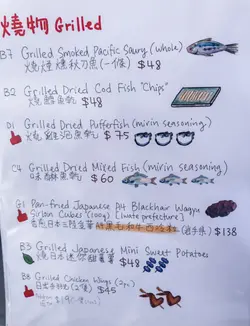 燒物 Grilled
B7 Grilled Smoked Pacific Saury (whole)
燒煙燻秋刀魚(一條) $48
B2 Grilled Dried Cod Fish "Chips"
燒鱈魚乾 $48
D1 Grilled Dried Pufferfish (mirin seasoning)
燒雞泡魚乾 $75
C4 Grilled Dried Mixed Fish (mirin seasoning)
味醂魚乾 $60
G1 Pan-fried Japanese A4 Blackhair Wagyu
Sirloin Cubes (100g) [Iwate prefecture]
香煎日本三陸金華 黑毛和牛西冷粒 (岩手県) $138
B3 Grilled Japanese Mini Sweet Potatoes
燒日本迷你甜薯 $48
B8 Grilled Chicken Wings (2pc)
(2隻) $45